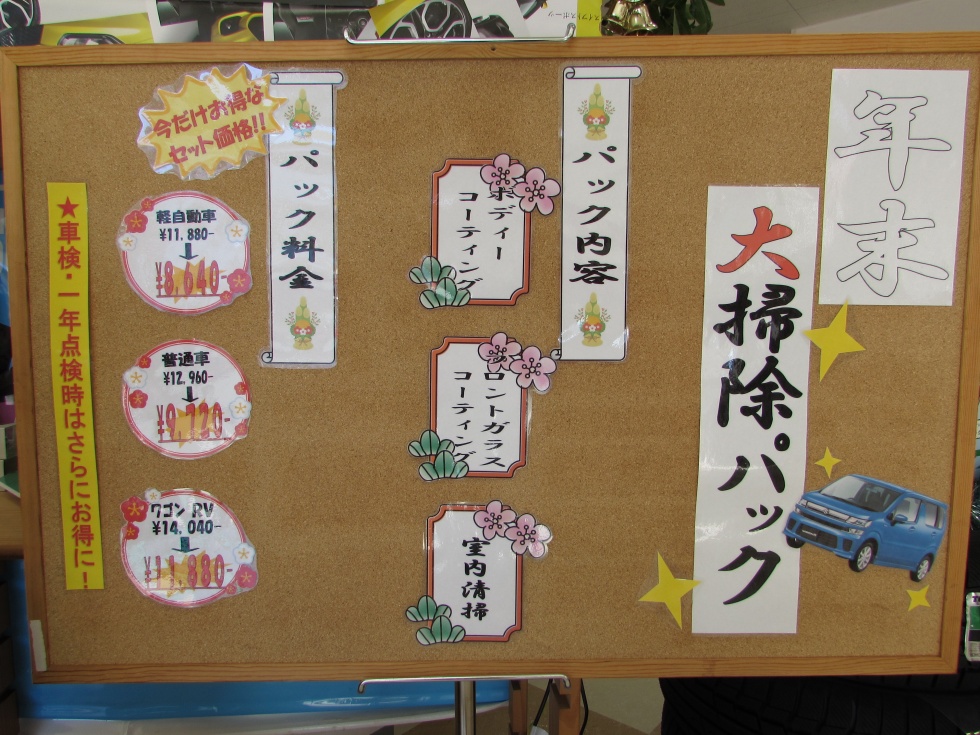 年末
大掃除パック
パック内容
ボディー
コーティング
フロントガラス
コーティング
室内清掃
パック料金
今だけお得な
セット価格!!
軽自動車
¥11.880-
¥8,640-
普通車
¥12.960-
¥9.720-
ワゴン RV
¥14.040-
¥11,880-
★車検・一年点検時はさらにお得に!
スイフトスポーツ